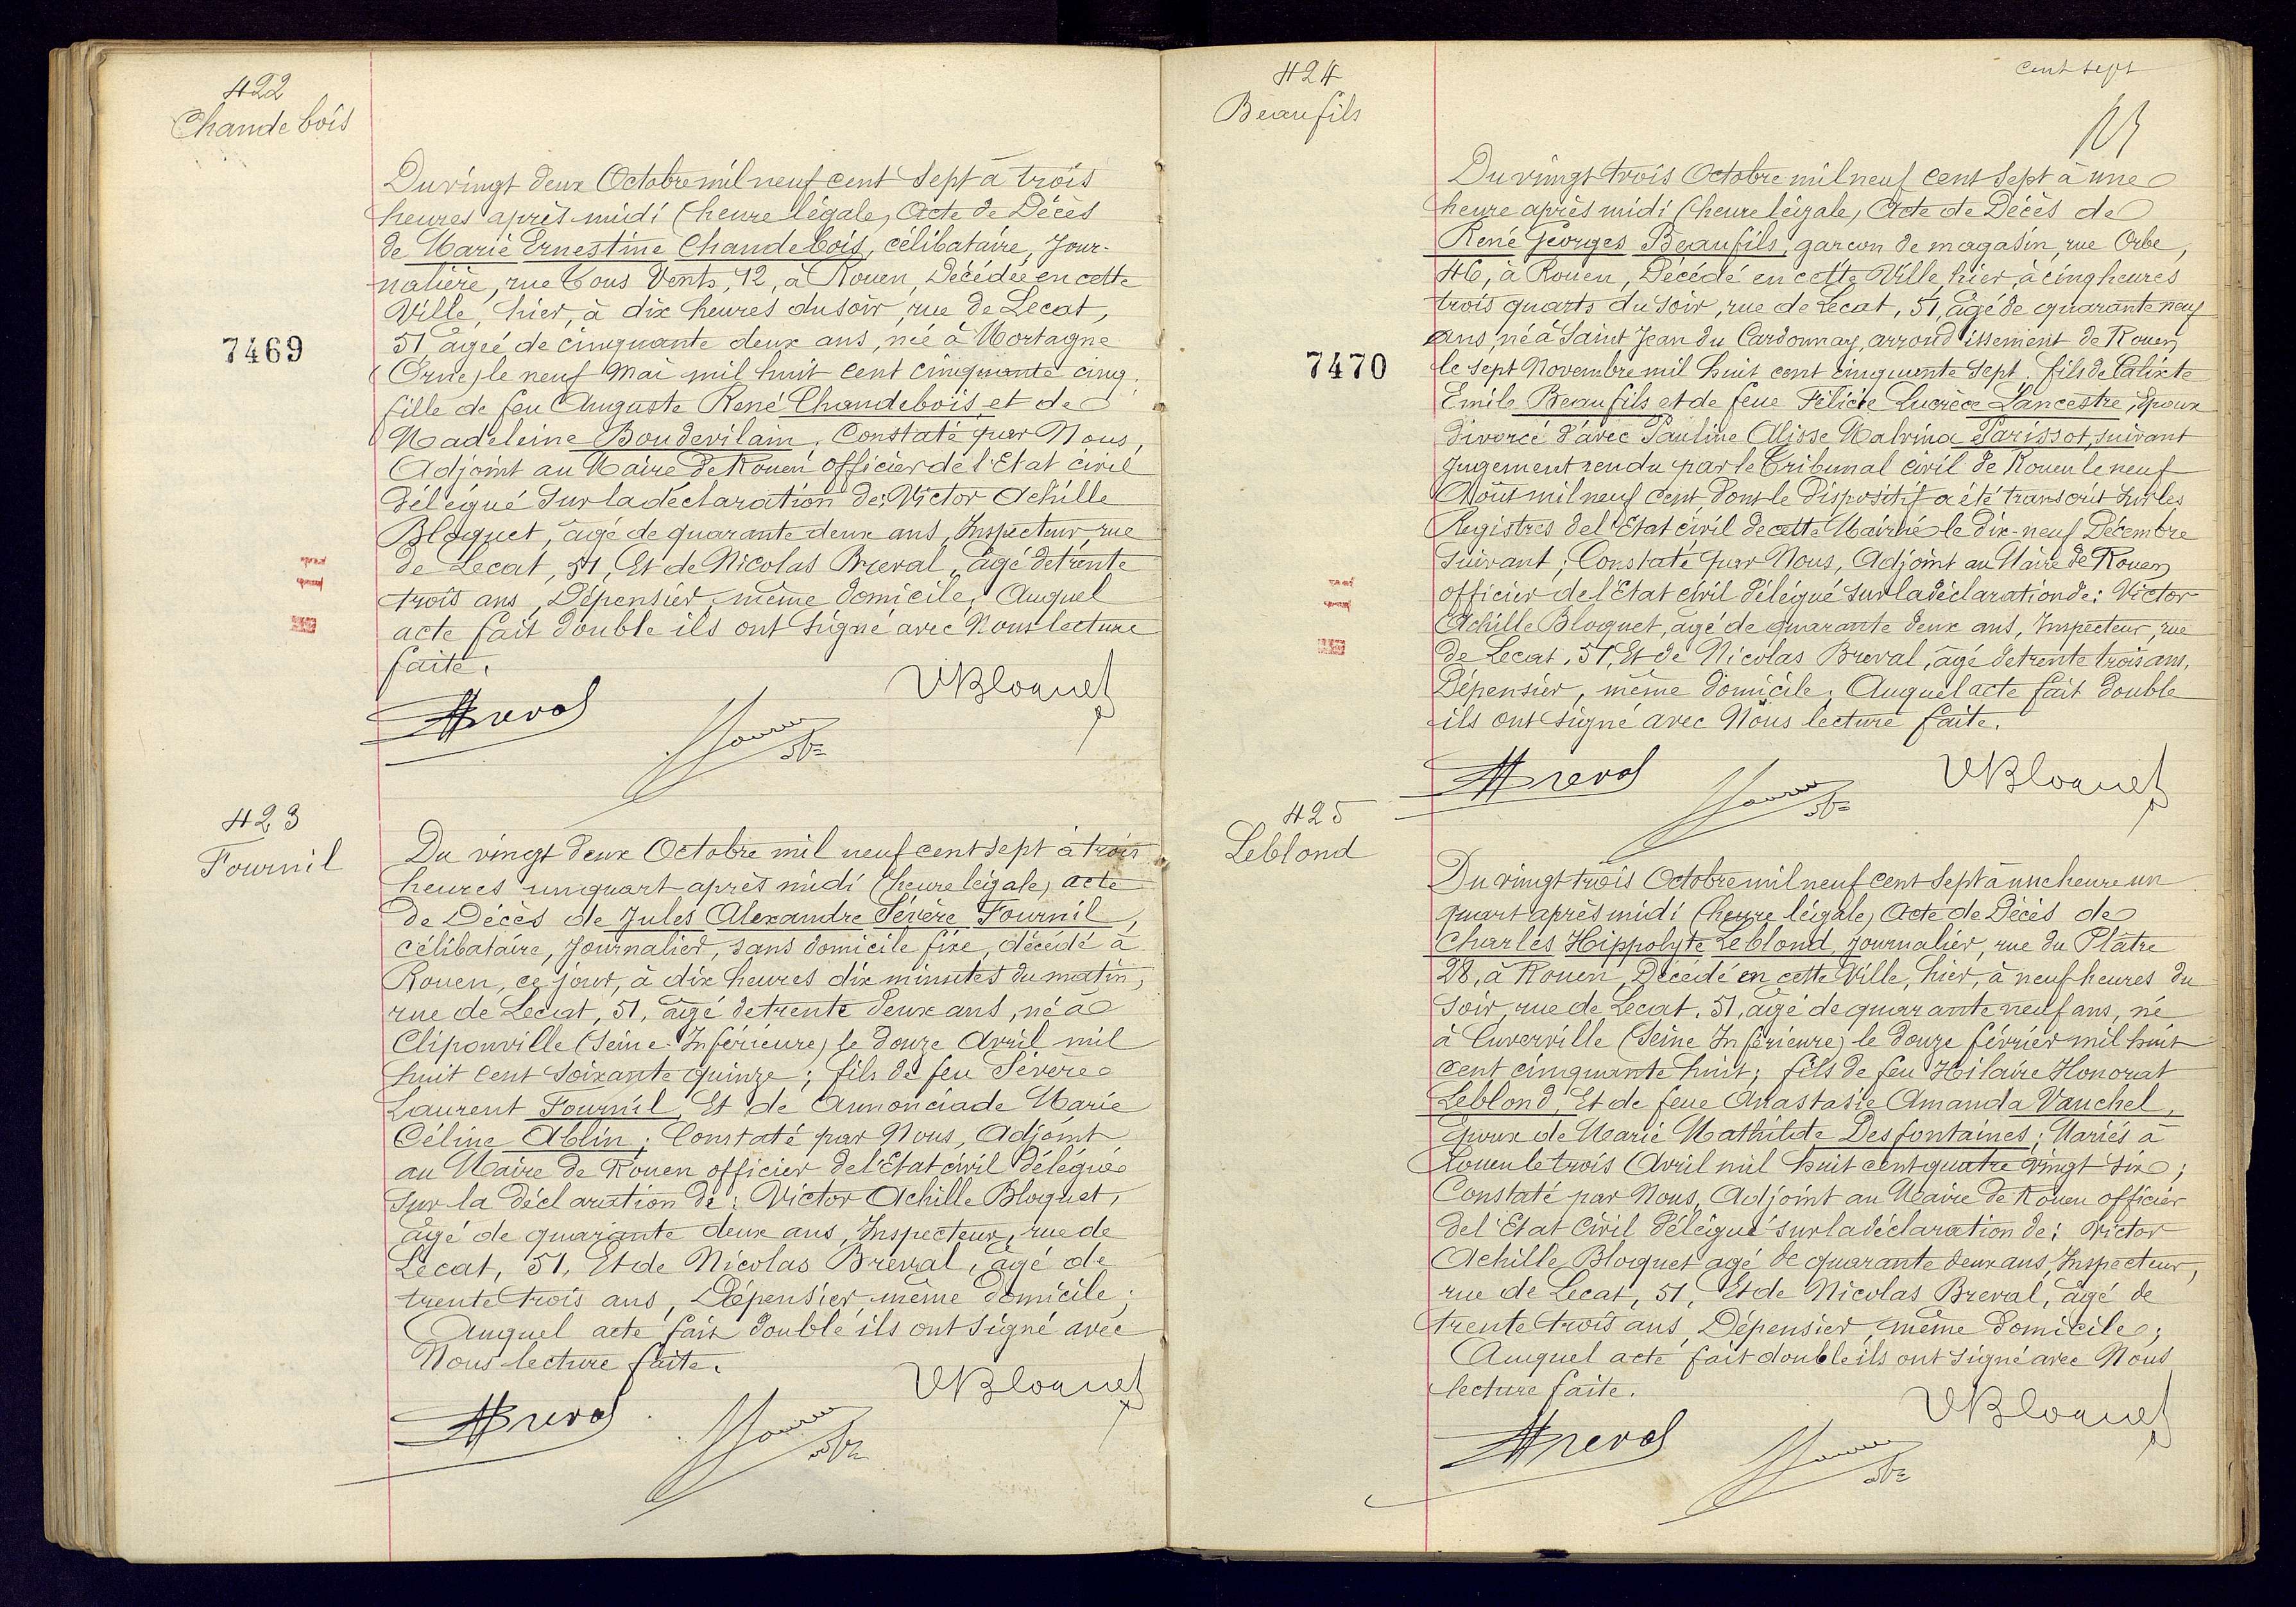 422
Chandebois
Du vingt deux Octobre mil neuf cent sept à trois
heures après-midi (heure légale) Acte de Décès
de Marie Ernestine Chandebois, célibataire, Jour-
nalière, rue Tous Vents, 12, à Rouen, Décédée en cette
Ville, hier, à dix heures du soir, rue de Lecat,
51, âgée de cinquante deux ans, née à Mortagne
(Orne) le neuf Mai mil huit cent cinquante cinq
fille de feu Auguste René Chandebois et de
Madeleine Boudevilain, Constaté par Nous,
Adjoint au Maire de Rouen officier de l'Etat civil
délégué sur la déclaration de: Victor Achille
Bloquet, âgé de quarante deux ans, Inspecteur, rue
de Lecat, 51, Et de Nicolas Breval, âgé de trente
trois ans, Dépensier, même domicile; Auquel
acte fait double ils ont signé avec Nous lecture
faite.
7469
NBreval
VBloquet
423
Fournil
Du vingt deux Octobre mil neuf cent sept à trois
heures un quart après midi (heure légale) acte
de Décès de Jules Alexandre Sévère Fournil,
célibataire, Journalier, sans domicile fixe, décédé à
Rouen, ce jour, à dix heures dix minutes du matin,
rue de Lecat, 51, âgé de trente deux ans, né à
Cliponville (Seine-Inférieure) le douze Avril mil
huit cent soixante quinze; fils de feu Sévère
Laurent Fournil, Et de Annonciade Marie
Céline Ablin; Constaté par Nous, Adjoint
au Maire de Rouen officier de l'Etat civil délégué
sur la déclaration de: Victor Achille Bloquet,
âgé de quarante deux ans, Inspecteur, rue de
Lecat, 51, Et de Nicolas Breval, âgé de
trente trois ans, Dépensier, même domicile;
Auquel acte fait double ils ont signé avec
Nous lecture faite.
NBreval
VBloquet
cent sept
424
Beaufils
Du vingt trois Octobre mil neuf cent sept à une
heure après midi (heure légale) Acte de Décès de
René Georges Beaufils, garçon de magasin, rue Orbe,
46, à Rouen, Décédé en cette Ville, hier, à cinq heures
trois quarts du soir, rue de Lecat, 51, âgé de quarante neuf
ans, né à Saint Jean du Cardonnay, arrondissement de Rouen
le sept Novembre mil huit cent cinquante sept, fils de Calixte
Emile Beaufils et de feue Félicie Lucrèce Lancestre, Epoux
divorcé d'avec Pauline Alisse Malvina Parissot, suivant
Jugement rendu par le Tribunal civil de Rouen le neuf
Août mil neuf cent dont le dispositif a été transcrit sur les
Registres de l'Etat civil de cette Mairie le dix-neuf Décembre
suivant; Constaté par Nous, Adjoint au Maire de Rouen
officier de l'Etat civil délégué sur la déclaration de: Victor
Achille Bloquet, âgé de quarante deux ans, Inspecteur, rue
de Lecat, 51, Et de Nicolas Breval, âgé de trente trois ans,
Dépensier, même domicile; Auquel acte fait double
ils ont signé avec Nous lecture faite.
7470
NBreval
VBloquet
425
Leblond
Du vingt trois Octobre mil neuf cent sept à une heure un
quart après midi (heure légale) Acte de Décès de
Charles Hippolyte Leblond, journalier, rue du Plâtre
28, à Rouen, Décédé en cette Ville, hier, à neuf heures du
soir, rue de Lecat, 51, âgé de quarante neuf ans, né
à Cuverville (Seine Inférieure) le douze février mil huit
cent cinquante huit; fils de feu Hilaire Honorat
Leblond, Et de feue Anastasie Amanda Vauchel,
Epoux de Marie Mathilde Desfontaines; Mariés à
Rouen le trois Avril mil huit cent quatre vingt six;
Constaté par Nous, Adjoint au Maire de Rouen officier
de l'Etat Civil délégué sur la déclaration de: Victor
Achille Bloquet agé de quarante deux ans, Inspecteur,
rue de Lecat, 51, Et de Nicolas Breval, âgé de
trente trois ans, Dépensier, même domicile;
Auquel acte fait double ils ont signé avec Nous
lecture faite.
NBreval
VBloquet